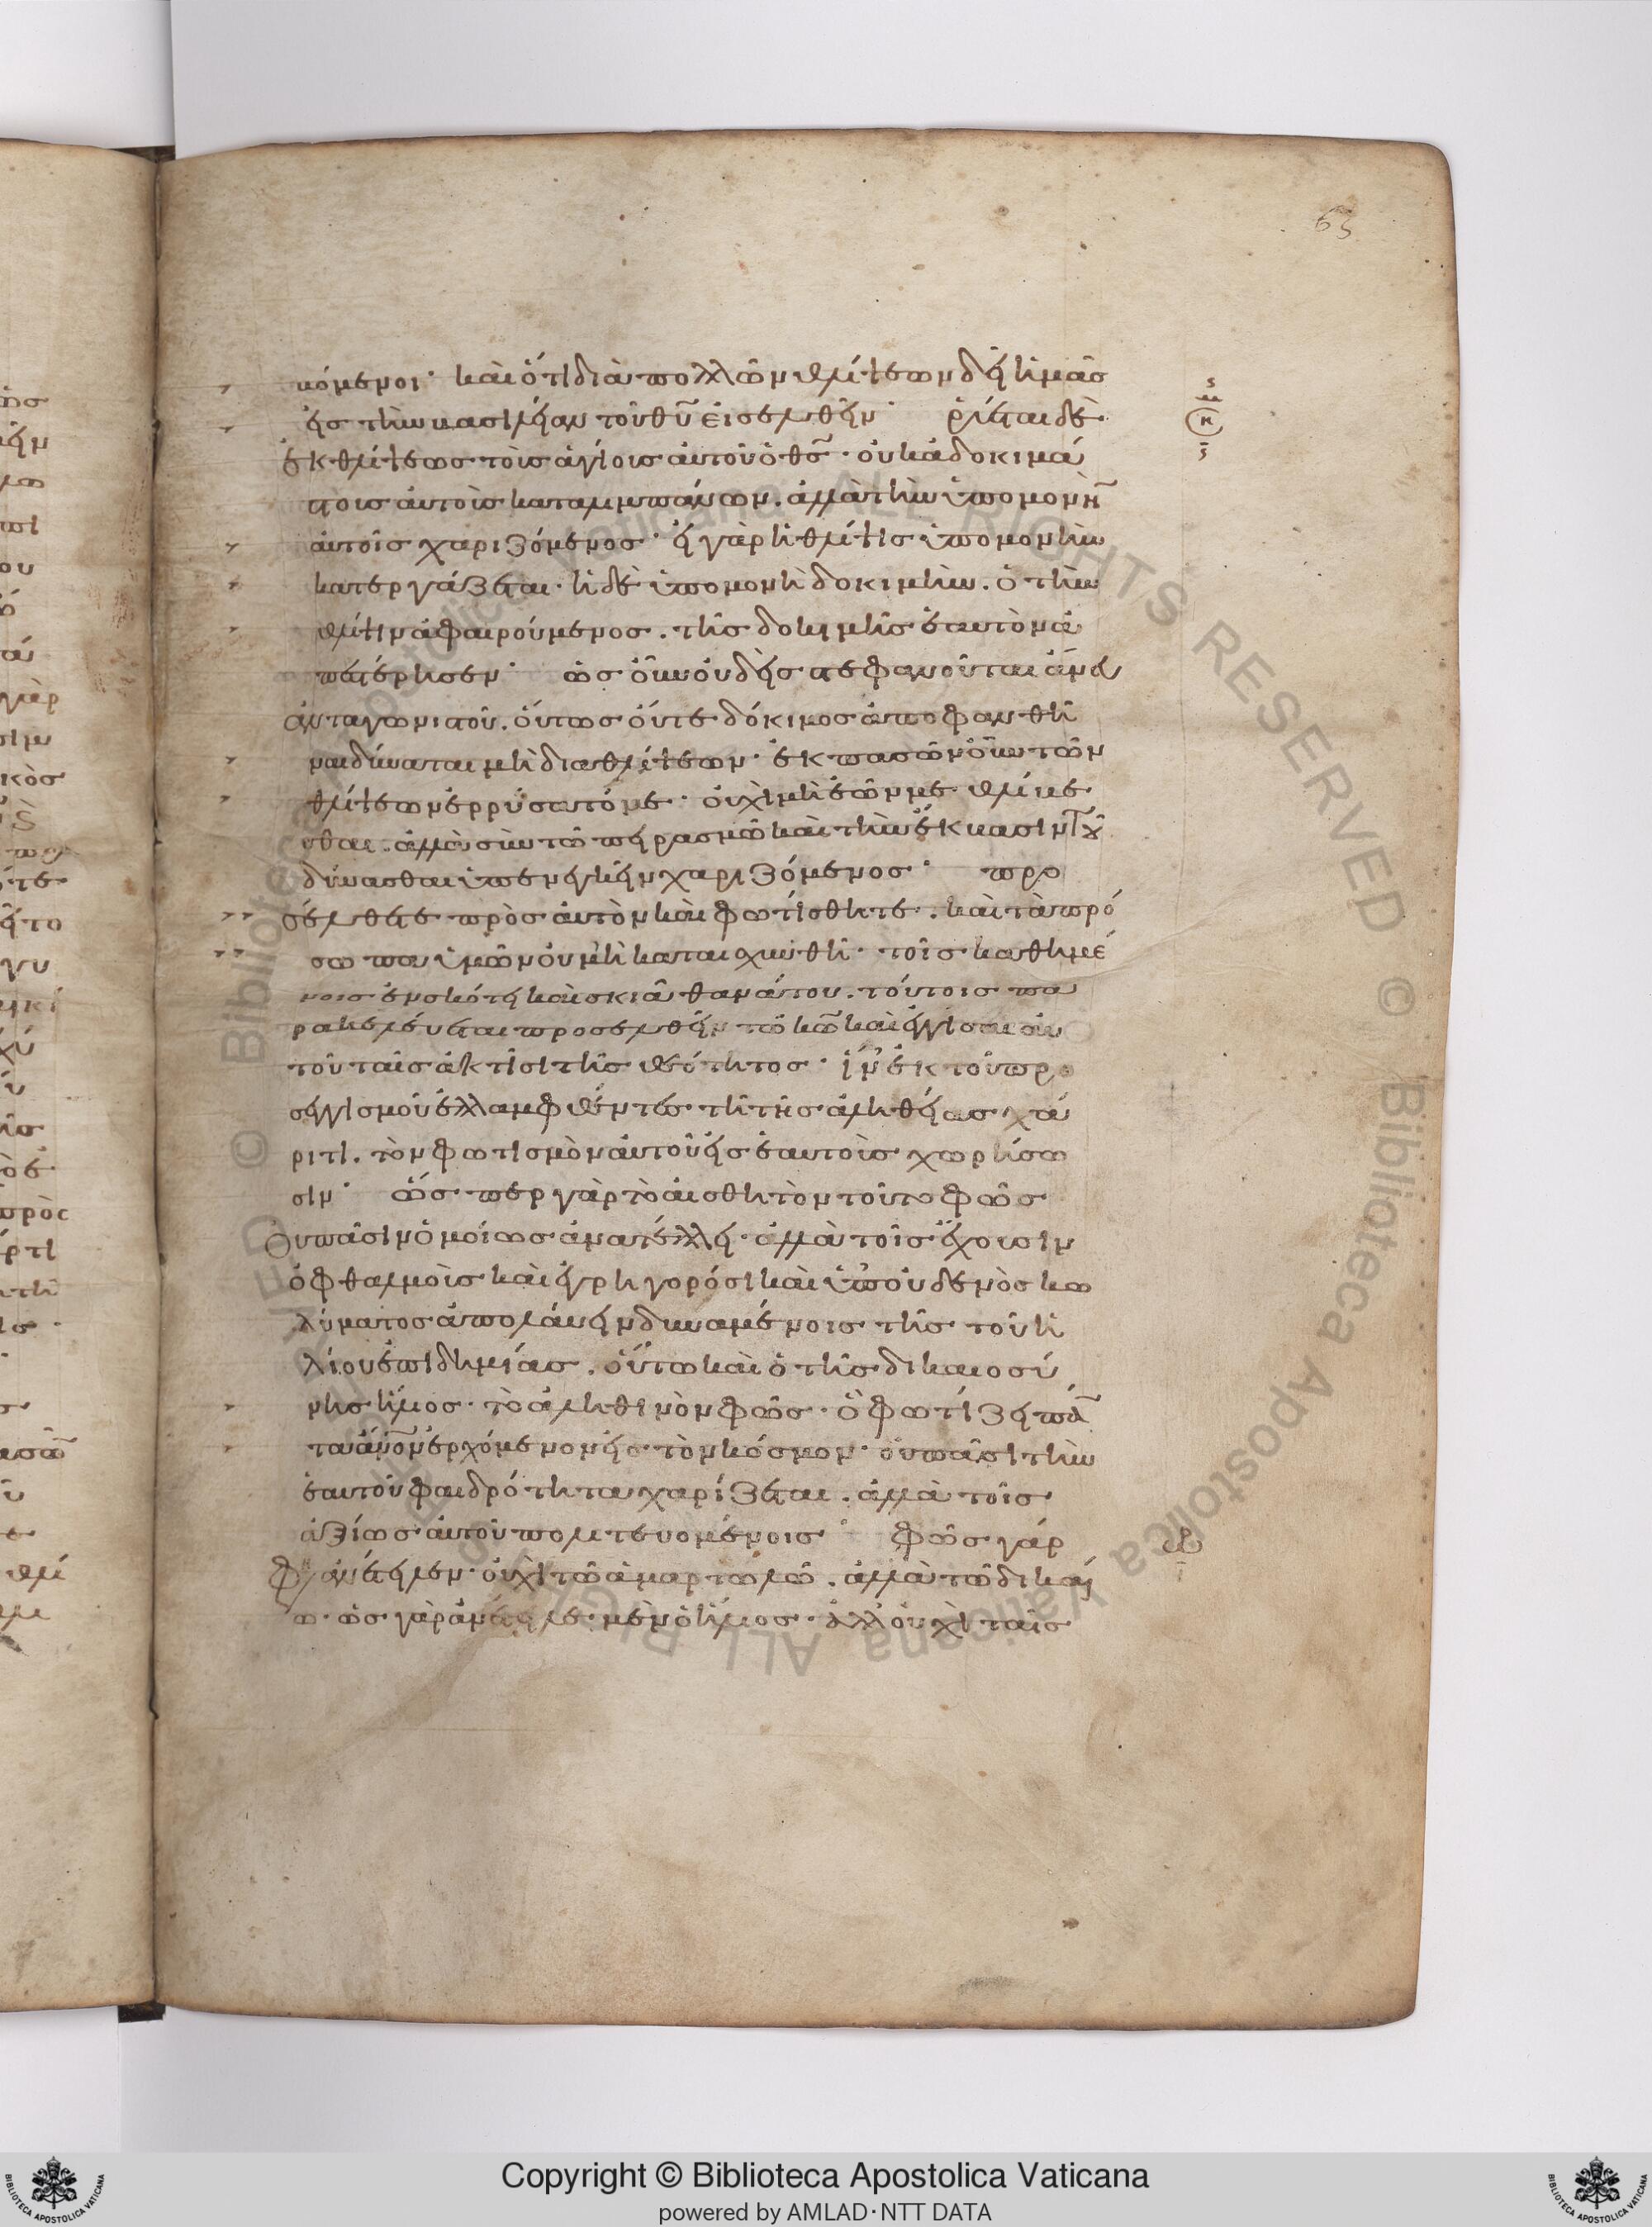 63
κόμενοι· καὶ ὅτι διὰ πολλῶν θλίψεων δεῖ ἡμᾶς
εἰς τὴν βασιλείαν τοῦ θυ εἰσελθεῖν· ῥύεται δὲ
ἐκ θλίψεως τοὺς ἁγίους αὐτοῦ ὁ θς· οὐκ ἀδοκιμά
στους αὐτοὺς καταλιμπάνων. ἀλλὰ τὴν ὑπομονὴ
αὐτοῖς χαριζόμενος· εἰ γὰρ ἡ θλίψις ὑπομονὴν
κατεργάζεται· ἡ δὲ ὑπομονὴ δοκιμὴν. ὁ τὴν
θλίψιν ἀφαιρούμενος. τῆς δοκιμῆς ἑαυτὸν ἀ
πεστέρησεν· ὡς οὖν οὐδεὶς στεφανοῦται ἄνευ
ἀνταγωνιστοῦ. οὕτως οὔτε δόκιμος ἀποφανθῆ
ναι δύναται μὴ διὰ θλίψεων· ἐκ πασῶν οὖν τῶν
θλίψεων ἐρρύσατό με· οὐχὶ μὴ ἐῶν με θλίβε
σθαι. ἀλλὰ σὺν τῶ πειρασμῶ καὶ τὴν ἔκβασιν τοῦ
δύνασθαι ὑπενεγκεῖν χαριζόμενος· προ
σέλθετε πρὸς αὐτὸν καὶ φωτίσθητε. καὶ τὰ πρό
σωπα ὑμῶν οὐ μὴ καταισχυνθῆ· τοῖς καθημέ
νοις ἐν σκότει καὶ σκιᾶ θανάτου. τούτοις πα
ρακελεύεται προσελθεῖν τῶ κω καὶ ἐγγίσαι αὐ
τοῦ ταῖς ἀκτῖσι τῆς θεότητος· ἵν' ἐκ τοῦ προ
σεγγισμοῦ ἐλλαμφθέντες τῆ τῆς ἀληθείας χά
ριτι. τὸν φωτισμὸν αὐτοῦ εἰς ἑαυτοὺς χωρήσω
σιν· ὥσπερ γὰρ τὸ αἰσθητὸν τοῦτο φῶς
οὐ πᾶσιν ὁμοίως ἀνατέλλει· ἀλλὰ τοῖς ἔχουσιν
ὀφθαλμοὺς καὶ ἐγρηγορόσι καὶ ὑπ' οὐδενὸς κω
λύματος ἀπολαύειν δυναμένοις τῆς τοῦ ἡ
λίου ἐπιδημίας. οὕτω καὶ ὁ τῆς δικαιοσύ
νης ἥλιος· τὸ ἀληθινὸν φῶς· ὃ φωτίζει πά
τα ἀνον ἐρχόμενον εἰς τὸν κόσμον· οὐ πᾶσι τὴν
ἑαυτοῦ φαιδρότητα χαρίζεται. ἀλλὰ τοῖς
ἀξίως αὐτοῦ πολιτευομένοις· φῶς γάρ
φη ἀνέτειλεν· οὐχὶ τῶ ἁμαρτωλῶ. ἀλλὰ τῶ δικαί
ω· ὡς γὰρ ἀνέτειλε μὲν ὁ ἥλιος· ἀλλ' οὐχὶ ταῖς
Copyright © Biblioteca Apostolica Vaticana
powered by AMLAD·NTT DATA